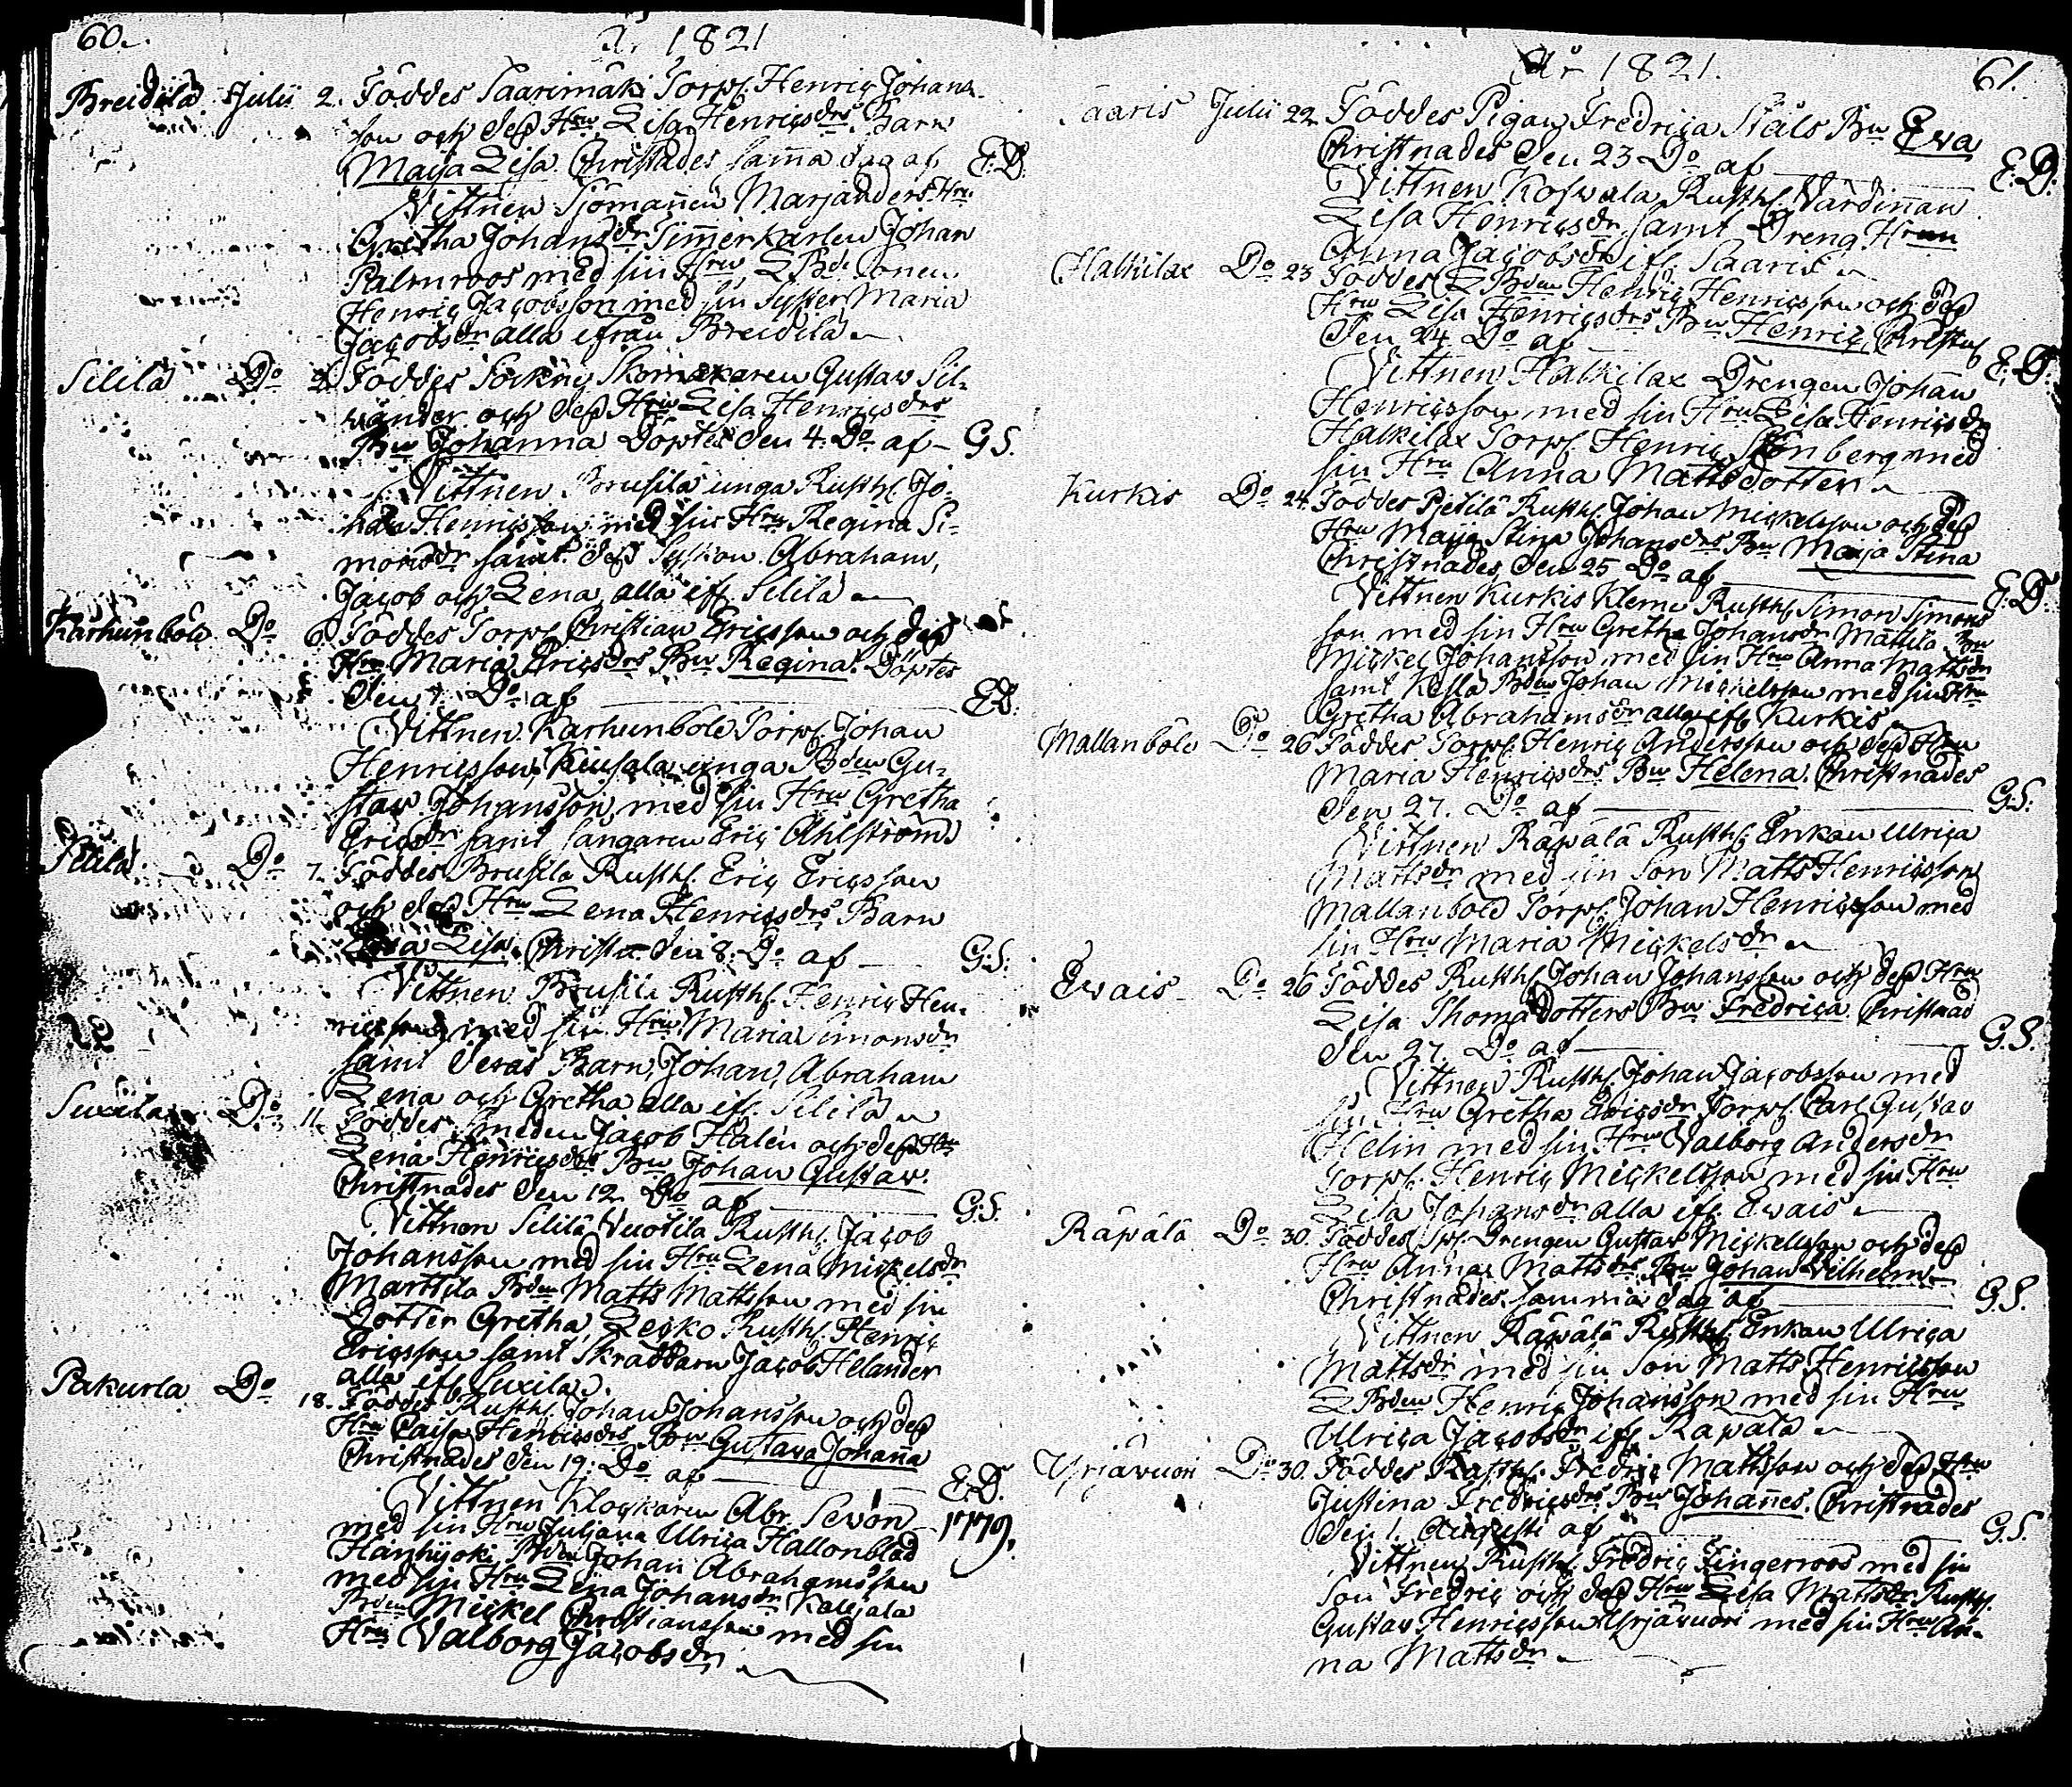 60.
År 1821
Breidilä Julii 2. Föddes Saarimäki Torp. Henric Johans-
son och deß Hru Lisa Henricsdrs Barn
Maija Lisa Christnades samma dag af E:D:
Vittnen Sjömannen Marjanders Hru
Gretha Johansdr Timmerkarlen Johan
Palmroos med sin Hru, LBd. Sonen
Henric Jacobsson med sin Syster Maria
Jacobsdr alla ifrån Breidilä
Sililä Do 2. Föddes Sockne Skomakaren Gustav Sil-
vander och deß Hru Lisa Henricsdrs
Bn Johanna Döptes den 4. Do af G.S.
Vittnen Brusila unga Rusth. Jo-
han Henricsson med sin Hru Regina Si-
monsdr samt deß Syskon Abraham,
Jacob och Lena, alla ifr. Sililä
Karhunbôle Do 6 Föddes Torp. Christian Ericsson och deß
Hru Maria Ericsdrs Bn Regina. Döptes
den 7. Do af E.D.
Vittnen Karhunbôle Torp. Johan
Henricsson, unga Bden Gu-
stav Johansson med sin Hru Gretha
Ericsdr samt Eric Ahlström
Sililä Do 7. Föddes Brusila Rusth. Eric Ericsson
och deß Hru Lena Henricsdrs Barn
Lisa Christn. den 8. Do af G:S:
Vittnen Brusila Rusth. Henric Hen-
ricsson med sin Hru Maria Simonsdr
samt deras Barn, Johan, Abraham
Lena och Gretha alla ifr. Sililä
Suxila Do 11. Föddes Smeden Jacob Halén och deß Hru
Lena Henricsdrs Bn Johan Gustav.
Christnades den 12 Do af G:S:
Vittnen Sililä Vuotila Rusth. Jacob
Johansson med sin Hru Lena Mickelsdr
Marttila Bden Matts Mattsson med sin
Dotter Gretha, Rusth. Henric
Ericsson samt Skräddaren Jacob Helander
alla ifr. Suxila
Pakurla Do 18. Föddes Rusth. Johan Johansson och deß
Hru Caisa Henricsdrs Bn Gustava Johanna
Christnades den 19. Do af E.D.
Vittnen Klockaren Abr. Sevon 1779.
med sin Hru Juljana Ulrica Hallonblad
Hanhijoki Bden Johan Abrahamsson
med sin Hru Lena Johansdr
Bden Mickel Christiansson med sin
Hru Valborg Jacobsdr
År 1821.
61.
Saaris Julii 22 Föddes Pigan Fredrica Ståls Bn Eva
Christnades den 23 Do af E:D:
Vittnen Rusth. Värdinnan
Lisa Henricsdr samt Dreng Hrun
Anna Jacobsdr ifr. Saaris
Halkilax Do 23 Föddes LBden Henric Henricsson och deß
Hru Lisa Henricsdrs Bn Henric, Christn.
den 24 Do af E:D:
Vittnen Halkilax Drengen Johan
Henricsson med sin Hru Lisa Henricsdr
Halkilax Torp. Henric Stenberg med
sin Hru Anna Mattsdotter
Kurkis Do 24 Föddes Rusth. Johan Mickelsson och deß
Hru Maija Stina Johansdrs Bn Maija Stina
Christnades den 25 Do af E:D:
Vittnen Kurkis Klemi Rusth. Simon Simons
son med sin Hru Gretha Johansdr Mattila Bn
Mickel Johansson med sin Hru Anna Mattsdr
samt Bden Johan Mickelsson med sin Hru
Gretha Abrahamsdr alla ifr. Kurkis
Mallanbôle Do 26 Föddes Torp. Henric Andersson och deß Hru
Maria Henricsdrs Bn Helena. Christnades
den 27. Do af G.S:
Vittnen Räpälä Rusth. Enkan Ulrica
Mattsdr med sin Son Matts Henricsson
Mallanbôle Torp. Johan Henricsson med
sin Hru Maria Mickelsdr
Evais Do 26 Föddes Rusth. Johan Johansson och deß Hru
Lisa Thomædotters Bn Fredrica Christnad
den 27. Do af G.S.
Vittnen Rusth. Johan Jacobsson med
sin Hru Gretha Ericsdr Torp. Carl Gustav
Helin med sin Hru Valborg Andersdr
Torp. Henric Mickelsson med sin Hru
Lisa Johansdr alla ifr. Evais
Räpälä Do 30. Föddes Drengen Gustav Mickelsson och deß
Hru Anna Mattsdrs Bn Johan Vilhelm
Christnades samma dag af G.S.
Vittnen Räpälä Rusth. Enkan Ulrica
Mattsdr med sin Son Matts Henricsson
LBden Henric Johansson med sin Hru
Ulrica Jacobsdr ifr. Räpälä
Yrjävuori Do 30. Föddes Rusth. Fredric Mattsson och deß Hru
Justina Fredricsdrs Bn Johannes. Christnades
den 1. Augusti af G.S.
Vittnen Rusth. Fredric Fingerroos med sin
Son Fredric och deß Hru Lisa Mattsdr Rusth.
Gustav Henricsson Yrjävuori med sin Hru An-
na Mattsdr